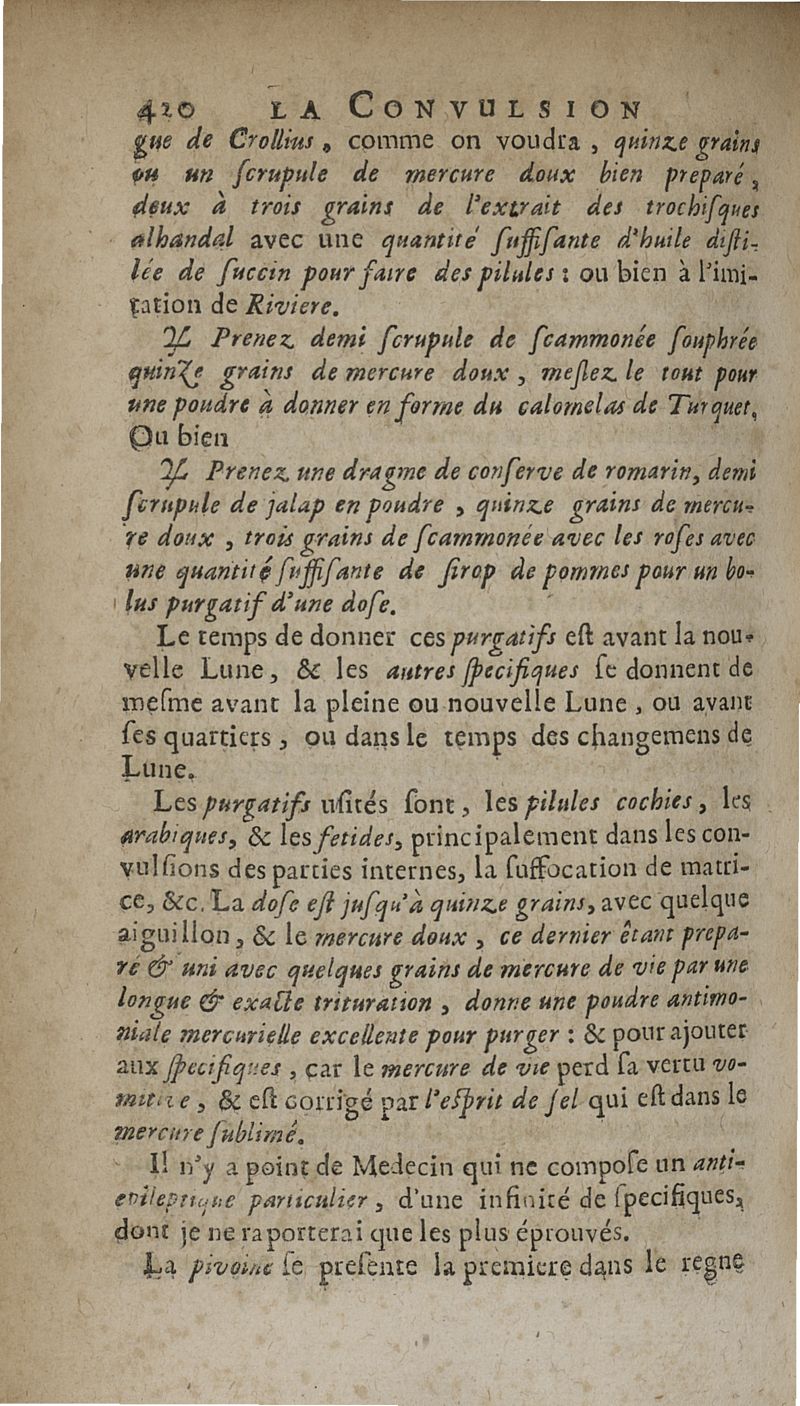 420 LA CONVULSION
gue de Crollius, comme on voudra, quinze grains
ou un ſcrupule de mercure doux bien preparé,
deux à trois grains de l'extrait des trochiſques
alhandal avec une quantité ſuffiſante d'huile diſti-
lée de ſuccin pour faire des pilules : ou bien à l'imi-
tation de Riviere.
♃ Prenez demi ſcrupule de ſcammonée ſouphrée
quinze grains de mercure doux, meſlez le tout pour
une poudre à donner en forme du calomelas de Turquet,
Ou bien
♃ Prenez une dragme de conſerve de romarin, demi
ſcrupule de jalap en poudre, quinze grains de mercu-
re doux, trois grains de ſcammonée avec les roſes avec
une quantité ſuffiſante de ſirop de pommes pour un bo-
lus purgatif d'une doſe.
Le temps de donner ces purgatifs eſt avant la nou-
velle Lune, & les autres ſpecifiques ſe donnent de
meſme avant la pleine ou nouvelle Lune, ou avant
ſes quartiers, ou dans le temps des changemens de
Lune.
Les purgatifs uſités ſont, les pilules cochies, les
arabiques, & les fetides, principalement dans les con-
vulſions des parties internes, la ſuffocation de matri-
ce, &c. La doſe eſt juſqu'à quinze grains, avec quelque
aiguillon, & le mercure doux, ce dernier êtant prepa-
ré & uni avec quelques grains de mercure de vie par une
longue & exacte trituration, donne une poudre antimo-
niale mercurielle excellente pour purger : & pour ajouter
aux ſpecifiques, car le mercure de vie perd ſa vertu vo-
mitive, & eſt corrigé par l'eſprit de ſel qui eſt dans le
mercure ſublimé.
Il n'y a point de Medecin qui ne compoſe un anti-
epileptique particulier, d'une infinité de ſpecifiques,
dont je ne raporterai que les plus éprouvés.
La pivoine ſe preſente la premiere dans le regne